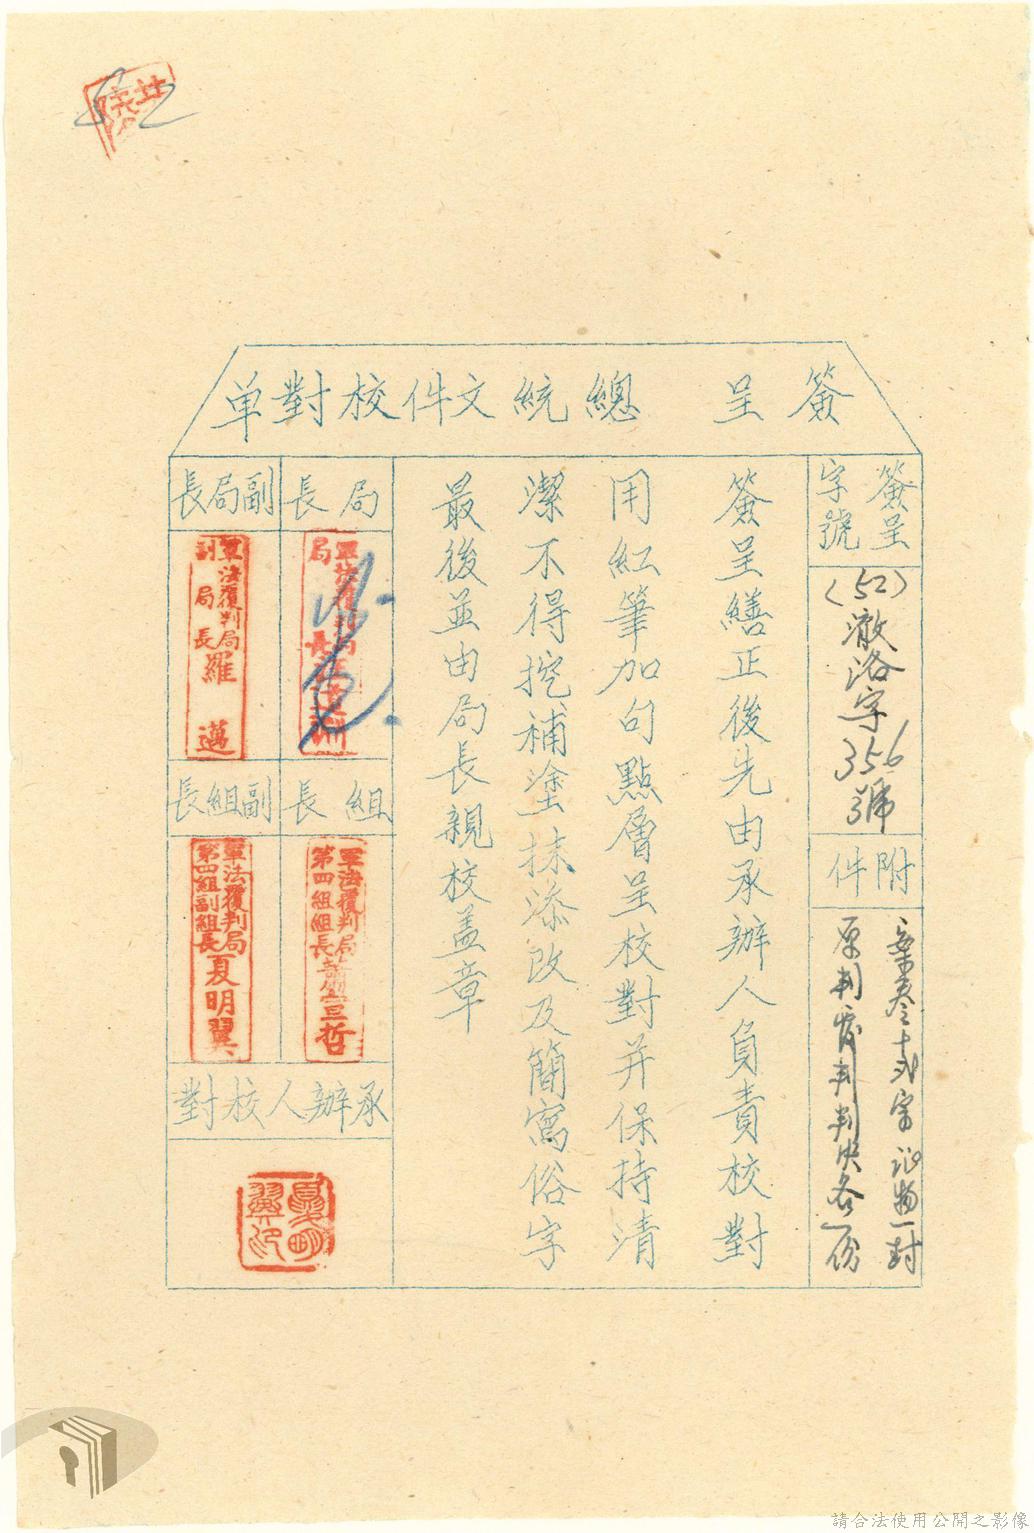 簽呈 總統文件校對单
簽呈
字號
(52)澈洛字356號
附件
原判覆判判決各一份
簽呈繕正後先由承辦人負責校對
用紅筆加句點層呈校對并保持清
潔不得挖補塗抹添改及簡寫俗字
最後並由局長親校蓋章
局長
軍法覆判局
局長
副局長
軍法覆判局
副局長 羅邁
組長
軍法覆判局
第四組組長蕭宣哲
副組長
軍法覆判局
第四組副組長 夏明翼
承辦人校對
夏明
翼印
請合法使用公開之影像